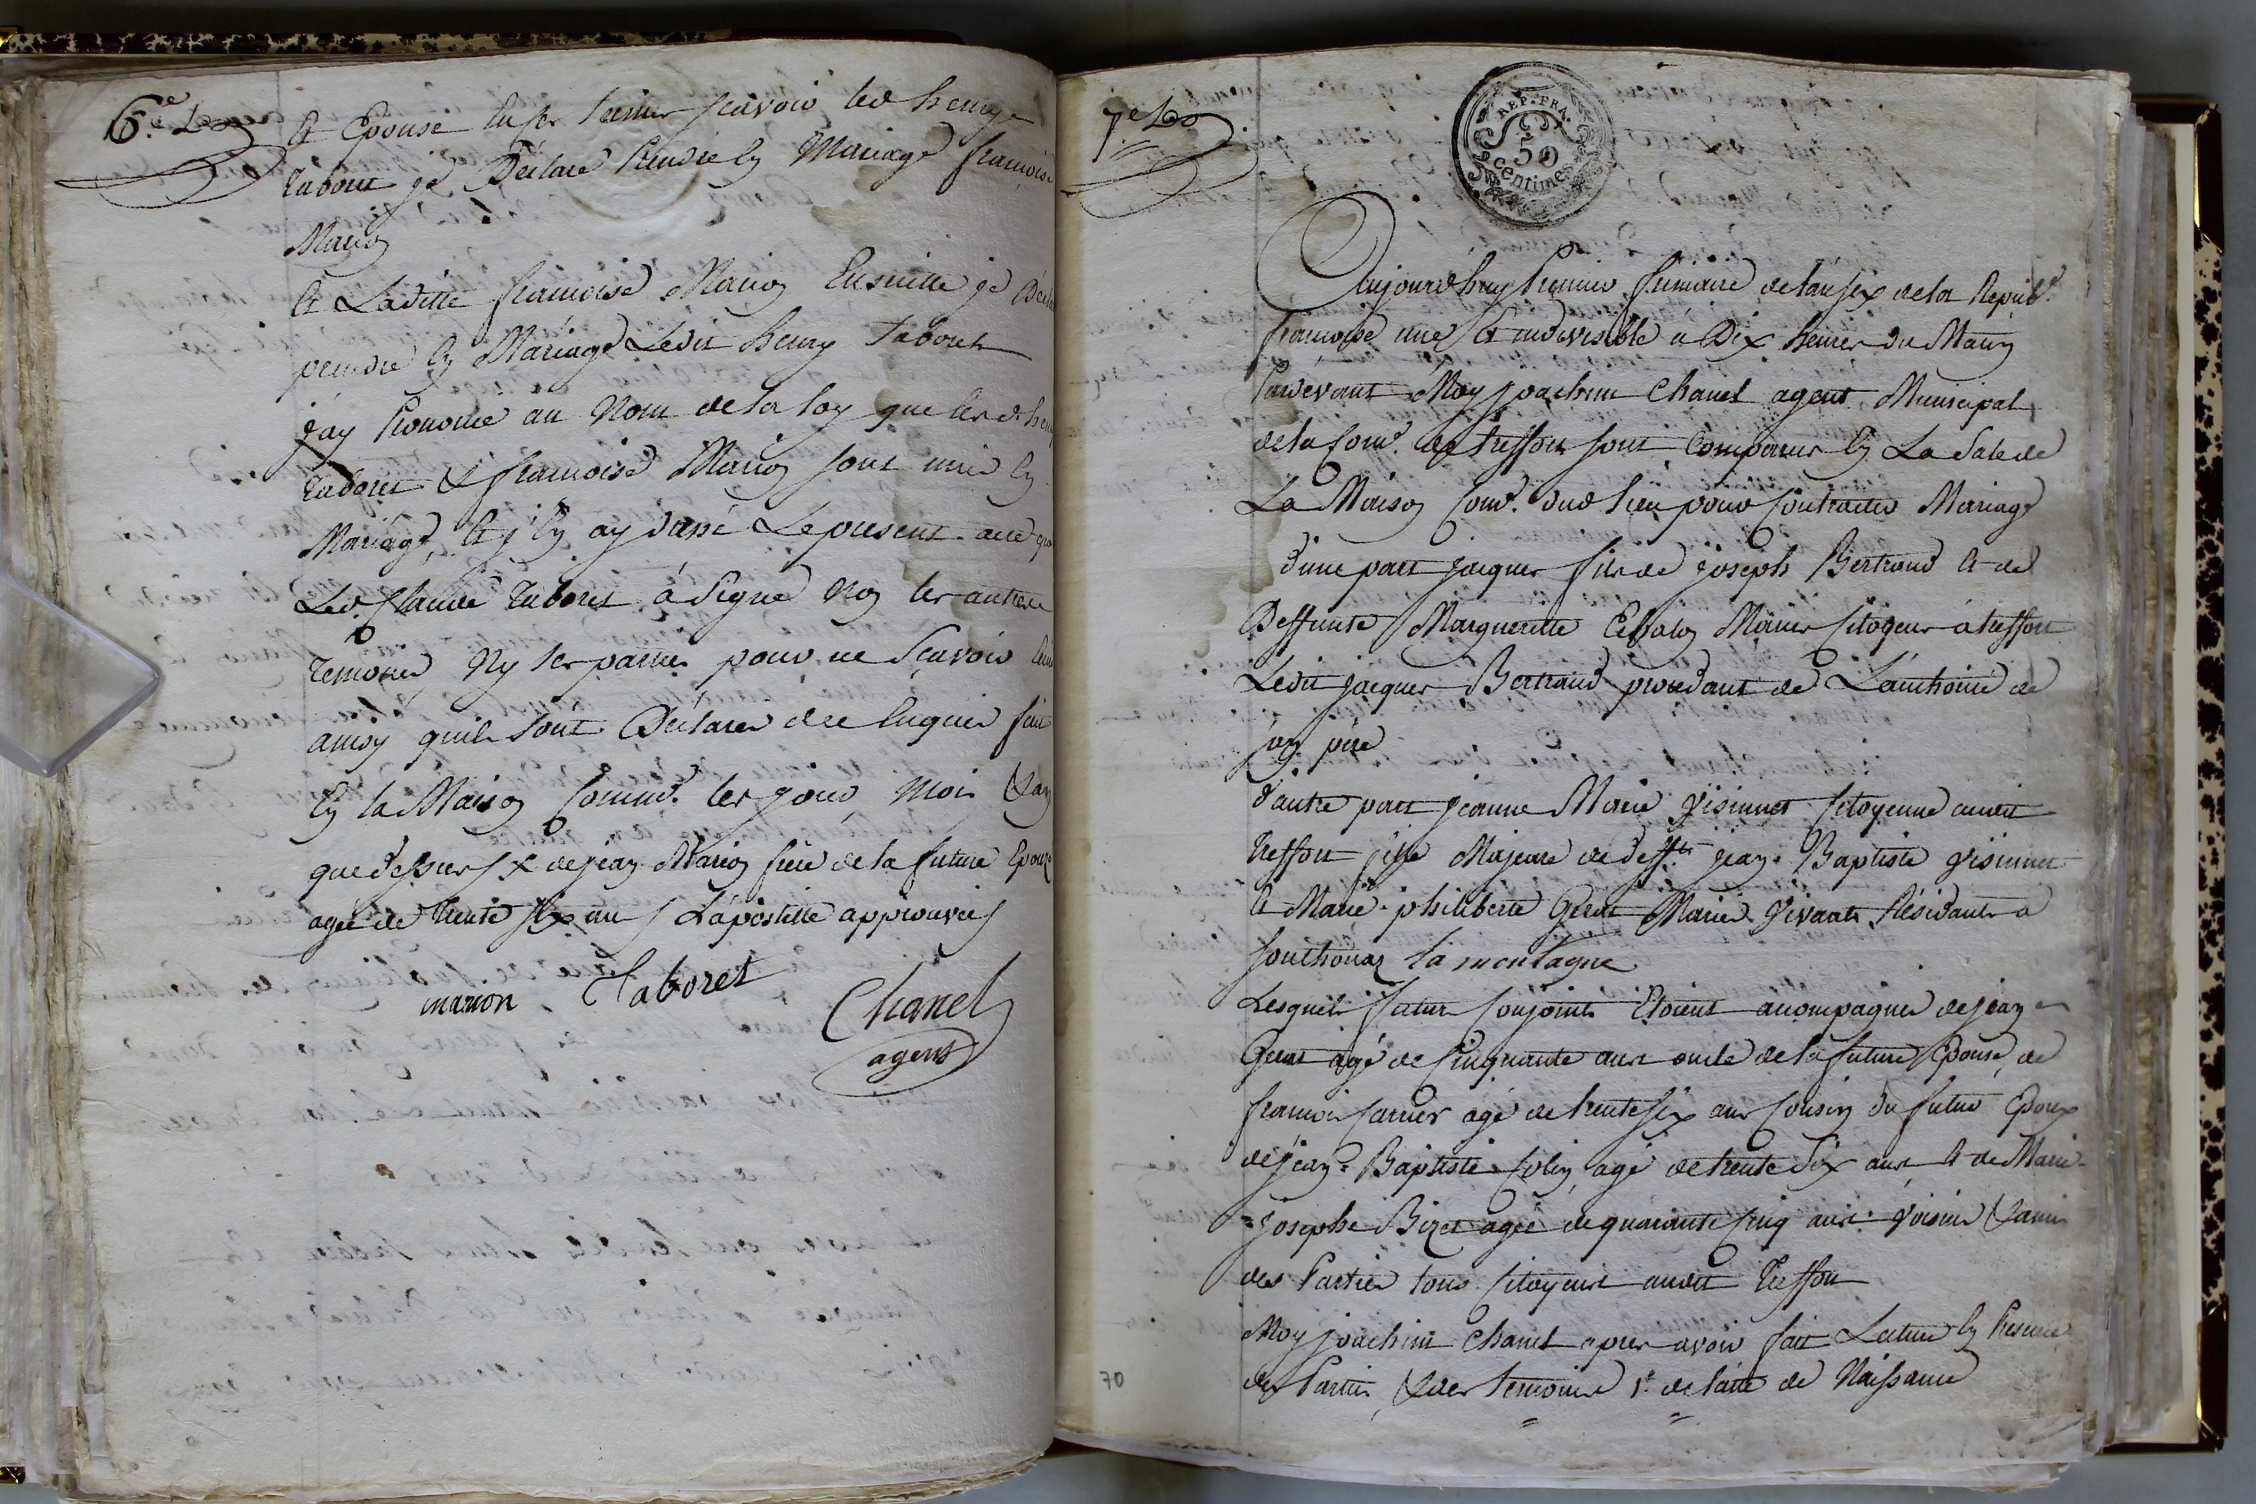 6.e
Et Epouse en ses termes sçavoir led henry
Taboret je Déclare prendre en Mariage françoise
Marion
Et Laditte françoise Marion Ensuitte je
prendre en Mariage Ledit henry Taboret
j'ay Prononcé au Nom de la loy que lesd
Taboret & françoise Marion sont unis en
Mariage, Et j'en ay dressé Le present acte que
Led. Claude Taboret à Signé Non les autres
Temoins Ny les parties pour ne Sçavoir
ainsy quils sont Déclarer de ce Enquis fait
En la Maison Commu.e les jour, Mois & an
que dessus / x de jean Marion frère de la future Epouse
agée de trente six ans / L'apostille approuvée /
marion Taboret
Chanel
agent
7.e
REP. FRA.
50
centimes
Aujourd'huy Premier frimaire de l'an six de la Republ.e
françoise une Et indivisible à Dix heures du Matin
Pardévant Moy joachim Chanel agent Municipal
de la Com.e de treffort sont Comparus En La Sale de
La Maison Com.e dud lieu pour Contracter Mariage
d'une part jacques fils de joseph Bertrand Et de
Deffunte Margueritte Mariés Citoyens à treffort
Ledit jacques Bertrand procédant de L'authorité de
son père
d'autre part jeanne Marie Citoyenne audit
treffort fille Majeure de deff.t jean-Baptiste
Et Marie-philiberte Mariés Vivants Résidants à
la montagne
Lesquels futurs Conjoints Etoient acompagnés de jean
agé de Cinquante ans oncle de la future Epouse, de
françois agé de trente six ans Cousin du futur Epoux
de jean-Baptiste agé de trente Six ans Et de Marie-
josephe agée de quarante Cinq ans Voisins & amis
des Parties tous Citoyens audit Treffort
Moy joachim Chanel apres avoir fait Lecture En Presence
des Parties & des temoins 1.e de l'acte de Naissance
70